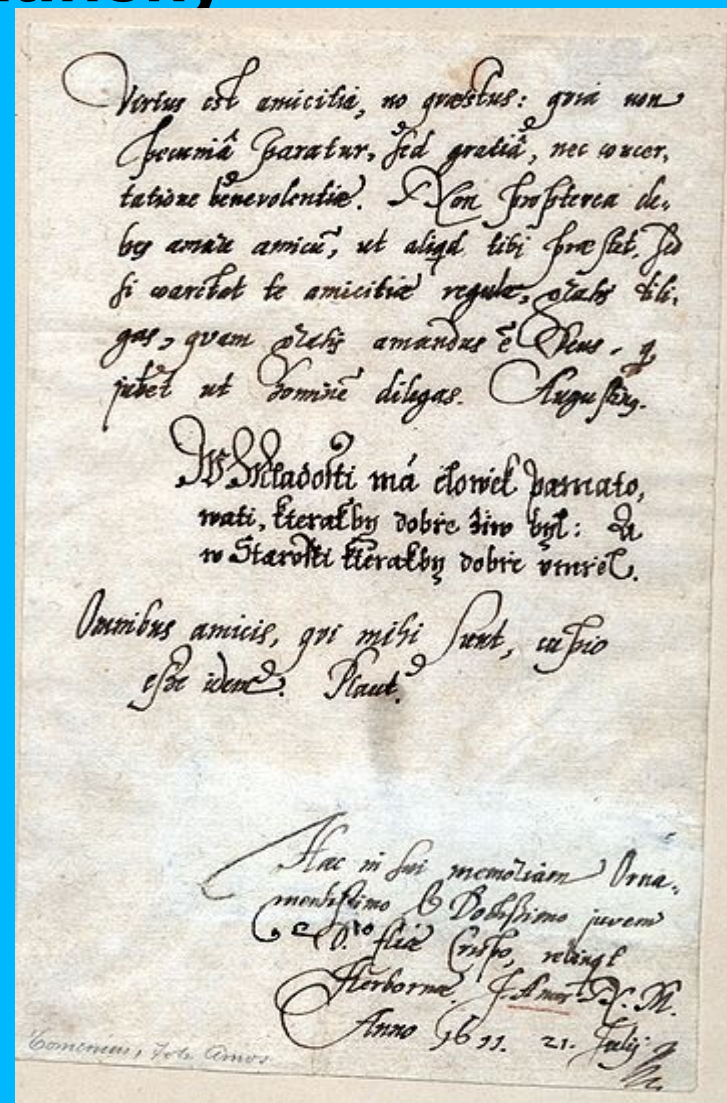 Virtus est amicitia, no quæstus: quia non
pecuniâ paratur, sed gratiâ, nec concer,
tatione benevolentiæ. Non propterea de,
bes amare amicũ, ut aliqd tibi præstet. Sed
si te amicitiæ regulæ, dili,
gas, quam amandus ẽ Deus, q
jubet ut hominẽ diligas. Augusting.
W Mladosti má človek pamato,
wati, kterakby dobře živ byl: A
w Starosti kterakby dobře vmřel.
Omnibus amicis, qvi mihi sunt, cupio
esse idem. Plaut.
Hæc in sui memoriam Orna,
mentissimo & Doctissimo juveni
D. Crispo, relinqt
Herbornæ. J. Amos N. M.
Anno 1611. 21. Julij
Comenius, Joh. Amos